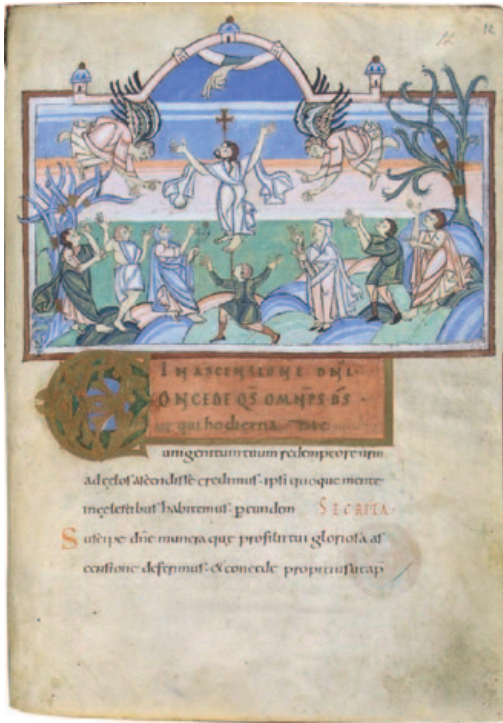 12
12
IN ASCENSIONE DNI.
CONCEDE QS OMNPS DS.
ut qui hodierna die
unigenitum tuum redemptorē nrm
ad celos ascendisse credimus. ipsi quoque mente
in celestibus habitemus. p eundem SECRETA.
Suscipe dne munera que pro filii tui gloriosa as
censione deferimus. & concede propitius ut a p